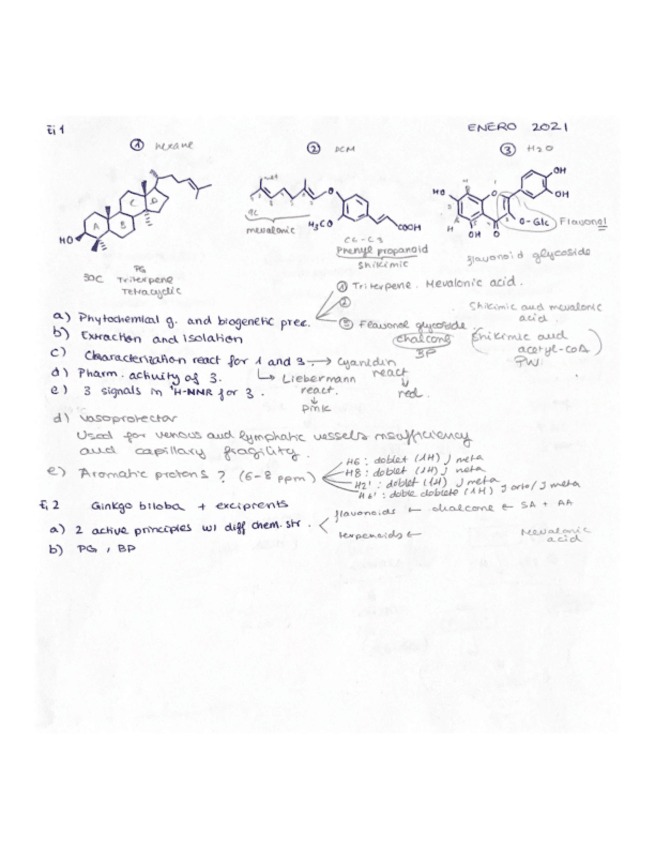 Ej 1
ENERO 2021
① hexane
② DCM
③ H₂O
HO
A B C D
30C
PG
Triterpene
Tetracyclic
O
H₃CO
COOH
mevalonic
C6-C3
Phenyl propanoid
Shikimic
HO
OH
OH
O-Glc
Flavonol
H
OH
O
flavonoid glycoside
a) Phytochemical g. and biogenetic prec.
① Triterpene. Mevalonic acid.
② Shikimic and mevalonic acid.
③ Flavonol glycoside.
chalcone
BP
(Shikimic and acetyl-coA PW)
b) Extraction and Isolation
c) Characterization react for 1 and 3. → Cyanidin react
↓
red.
↳ Liebermann react.
↓
pink
d) Pharm. activity of 3.
e) 3 signals in ¹H-NMR for 3.
d) Vasoprotector
Used for venous and lymphatic vessels insufficiency
and capillary fragility.
e) Aromatic protons? (6-8 ppm)
H6: doblet (1H) J meta
H8: doblet (1H) J meta
H2': doblet (1H) J meta
H6': doble doblete (1H) J orto / J meta
Ej 2 Ginkgo biloba + excipients
a) 2 active principles w/ diff chem. str.
flavonoids ← chalcone ← SA + AA
terpenoids ← Mevalonic acid
b) PG, BP